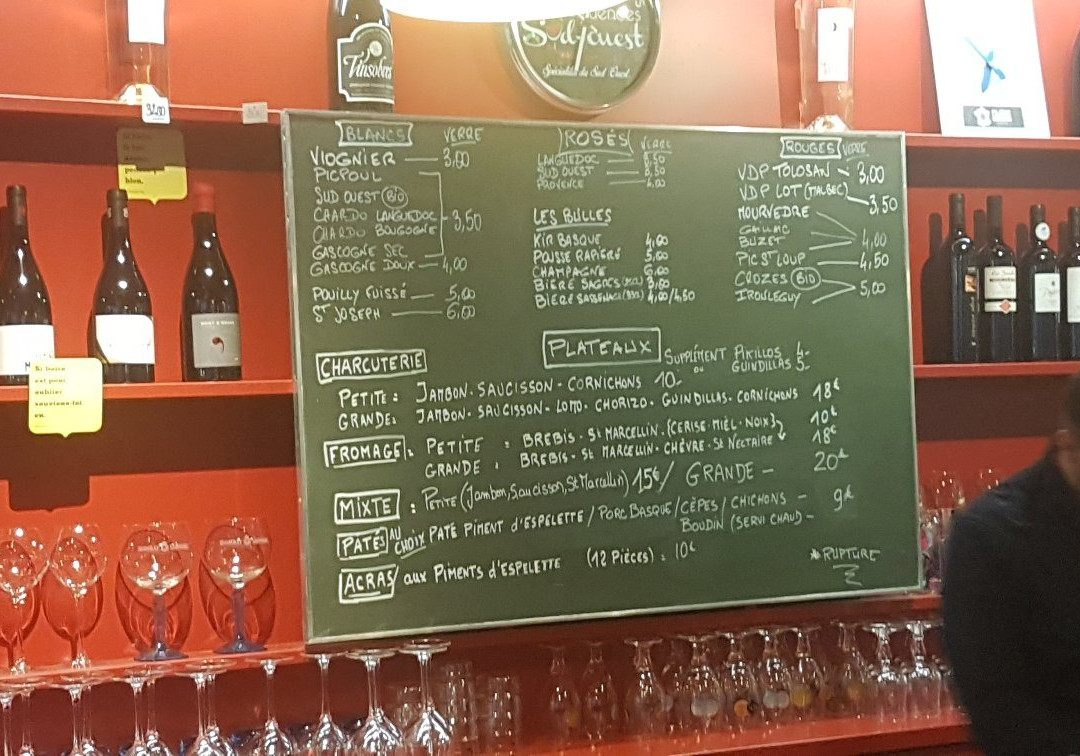 Vinsobres
Sudjouest
Spécialités du Sud Ouest
BLANCS VERRE
VIOGNIER — 3,00
PICPOUL
SUD OUEST BIO
CHARDO LANGUEDOC 3,50
CHARDO BOUGOGNE
GASCOGNE SEC
GASCOGNE DOUX — 4,00
POUILLY FUISSÉ — 5,00
ST JOSEPH — 6,00
ROSÉS VERRE
LANGUEDOC — 3,50
SUD OUEST — 3,50
PROVENCE — 4,00
LES BULLES
KIR BASQUE 4,00
POUSSE RAPIÈRE 5,00
CHAMPAGNE 6,00
BIÈRE SAGRES 3,00
BIÈRE 4,00/4,50
ROUGES VERRE
VDP TOLOSAN — 3,00
VDP LOT (MALBEC) — 3,50
MOURVEDRE
GAILLAC 4,00
BUZET
PIC ST LOUP — 4,50
CROZES BIO 5,00
IROULEGUY
PLATEAUX
SUPPLÉMENT PIKILLOS 4.-
OU GUINDILLAS 5.-
CHARCUTERIE
PETITE : JAMBON - SAUCISSON - CORNICHONS 10.-
GRANDE : JAMBON - SAUCISSON - LOMO - CHORIZO - GUINDILLAS - CORNICHONS 18€
FROMAGE : PETITE : BREBIS - St MARCELLIN - {CERISE - MIEL - NOIX} 10€
GRANDE : BREBIS - St MARCELLIN - CHÈVRE - St NECTAIRE 18€
MIXTE : PETITE (Jambon, Saucisson, St Marcellin) 15€ / GRANDE — 20€
PATÉS AU CHOIX PATÉ PIMENT d'ESPELETTE / PORC BASQUE / CÈPES / CHICHONS — 9€
BOUDIN (SERVI CHAUD) —
ACRAS aux PIMENTS d'ESPELETTE (12 PIÈCES) : 10€
*RUPTURE